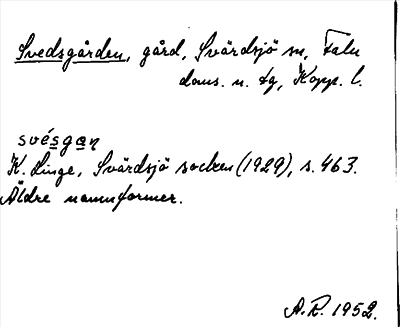 Svedsgården, gård, Svärdsjö sn, Falu
doms. n. tg, Kopp. l.
svésgan
K. Linge, Svärdsjö socken (1929), s. 463.
Äldre namnformer.
A.R. 1952.